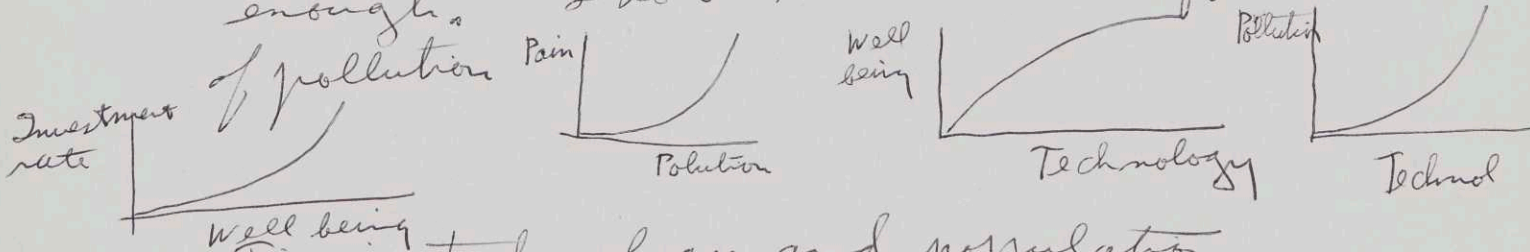 enough.
of pollution
Investment
rate
Well being
Pain
Polution
Well
being
Technology
Pollution
Technol
and population